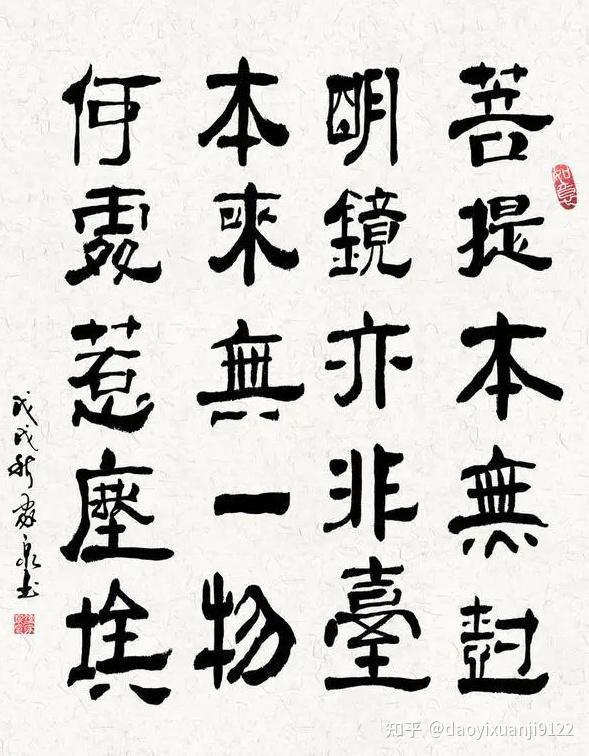 菩提本無樹
明鏡亦非臺
本來無一物
何處惹塵埃
戊戌秋泉书
如意
知乎 @daoyixuanji9122